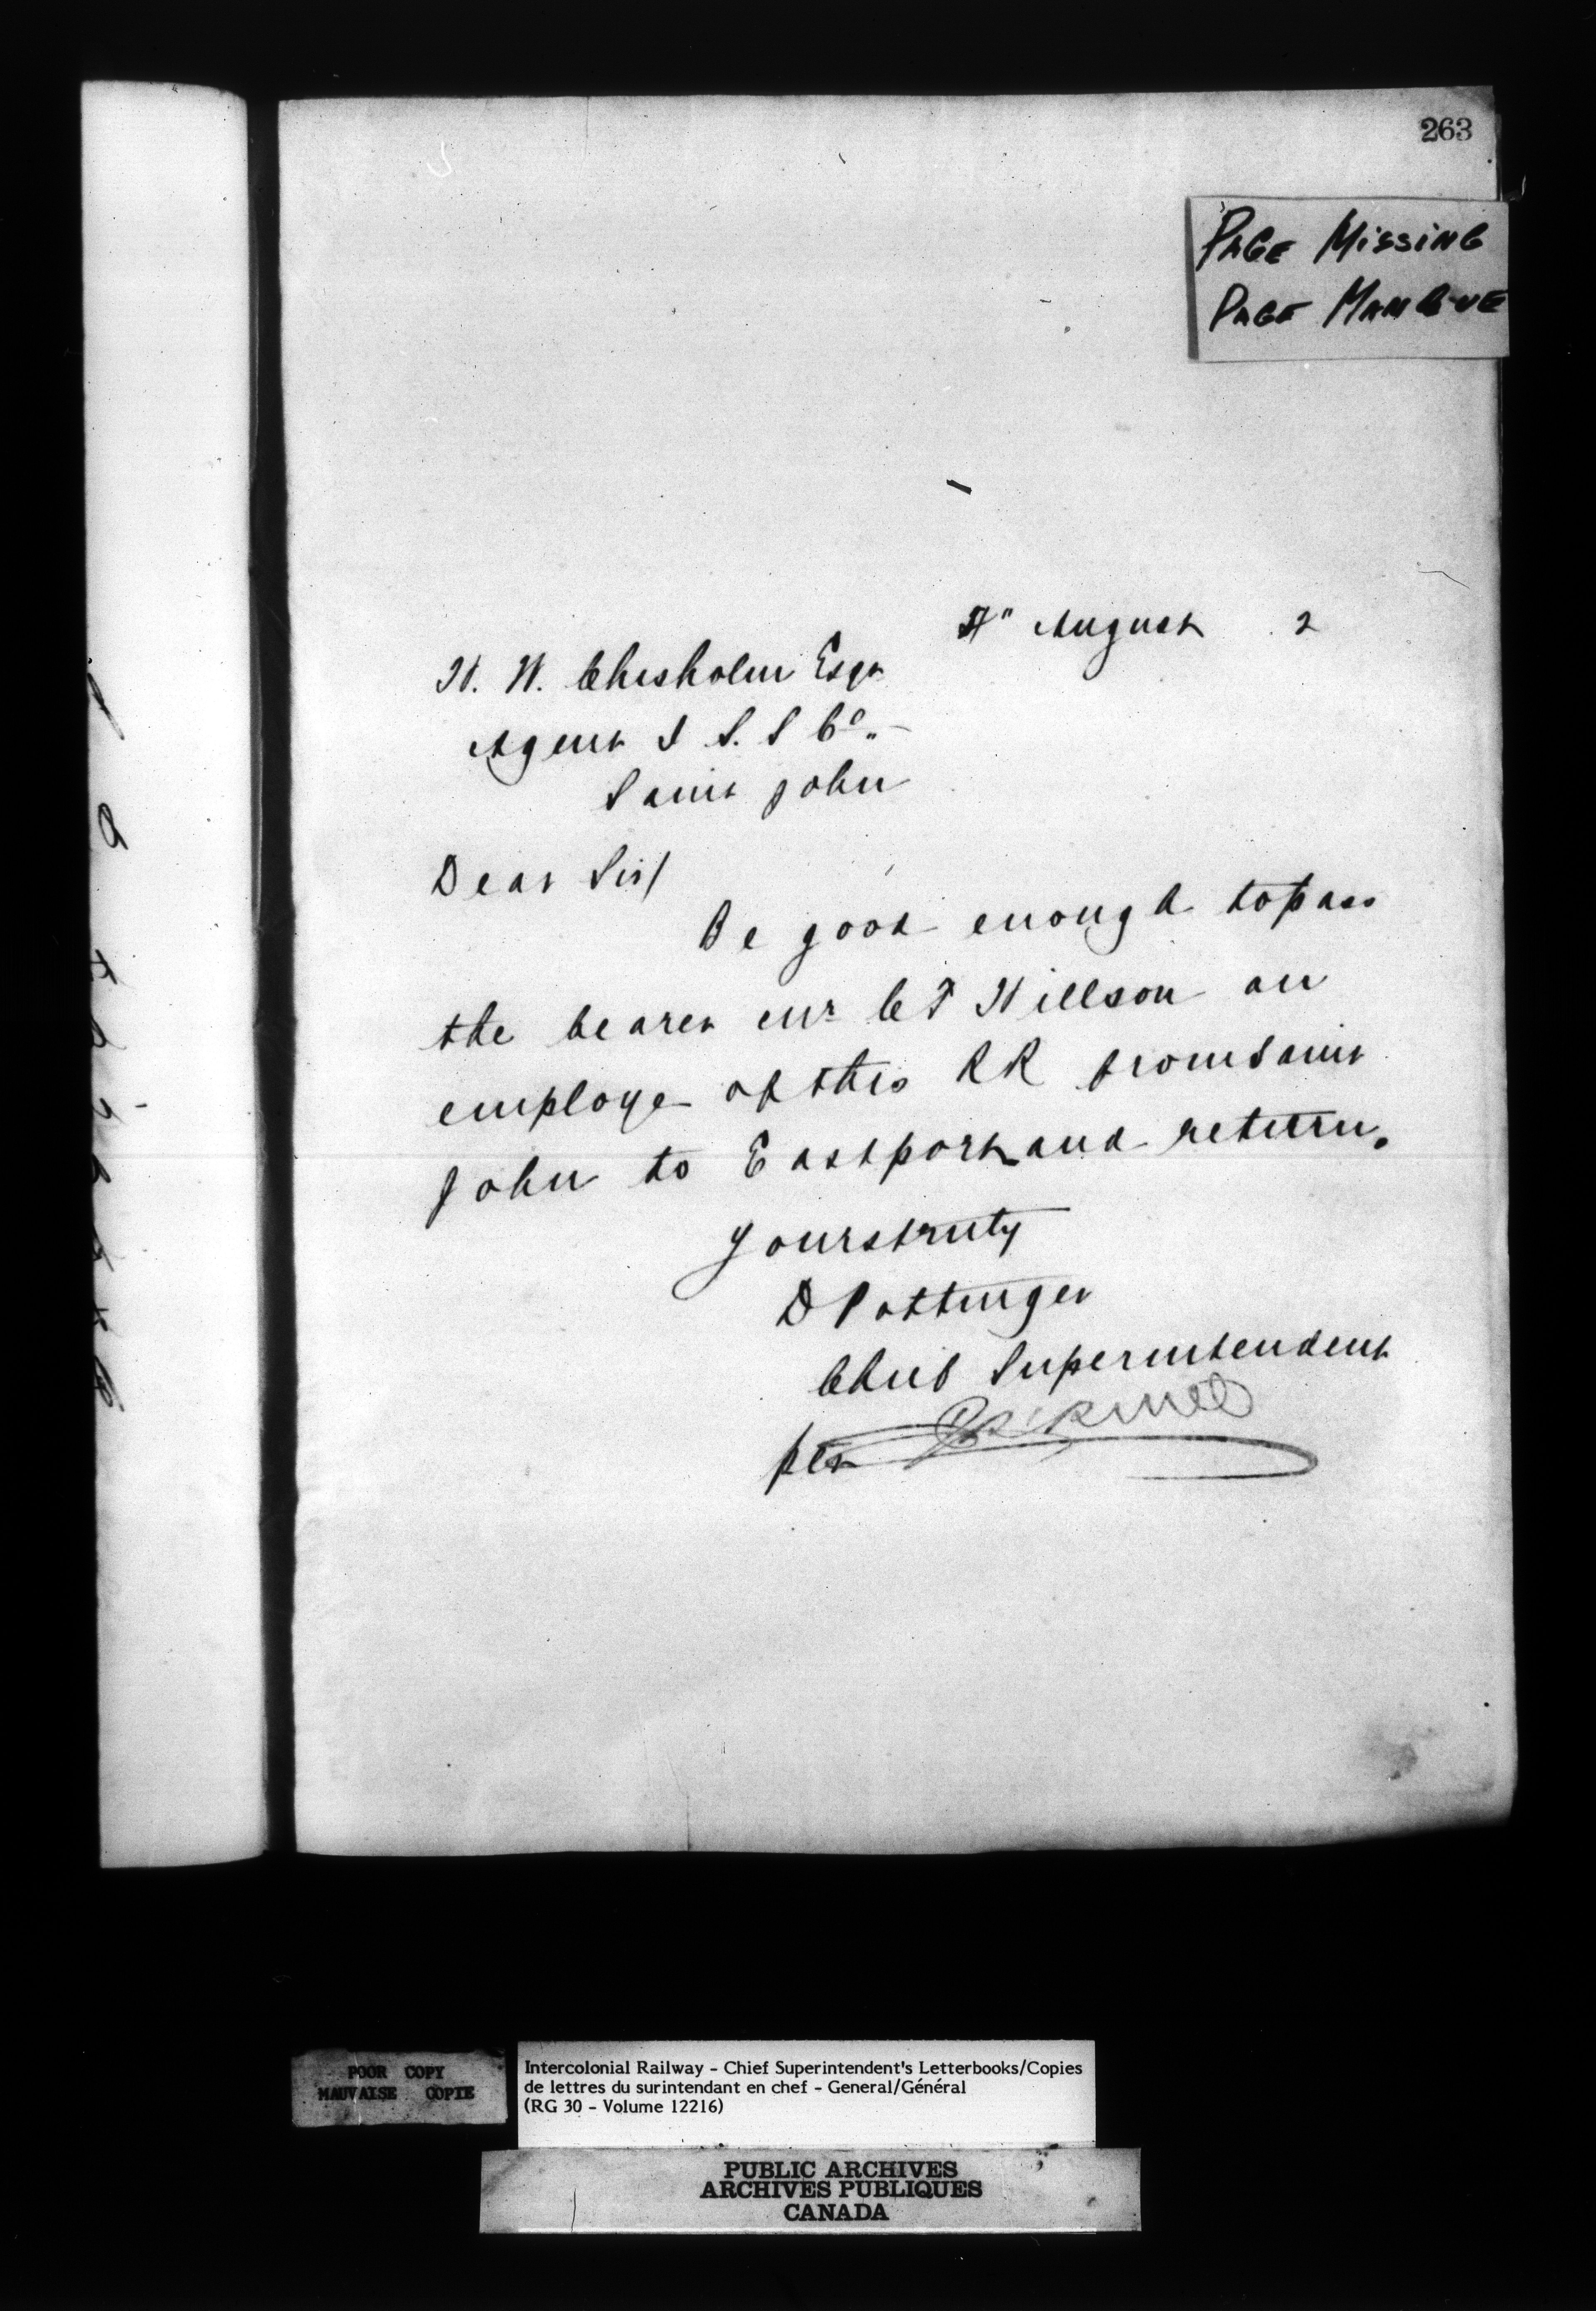 263
PAGE MISSING
PAGE MANQUE
August 2
H. W. Chisholm Esqr
Agent I S. S Co. -
Saint John
Dear Sir/
Be good enough to pass
the bearer mr C F Willson an
employe of this RR from Saint
John to Eastport and return.
Yours truly
D Pottinger
Chief Superintendent
per
POOR COPY
MAUVAISE COPIE
Intercolonial Railway - Chief Superintendent's Letterbooks/Copies
de lettres du surintendant en chef - General/Général
(RG 30 - Volume 12216)
PUBLIC ARCHIVES
ARCHIVES PUBLIQUES
CANADA